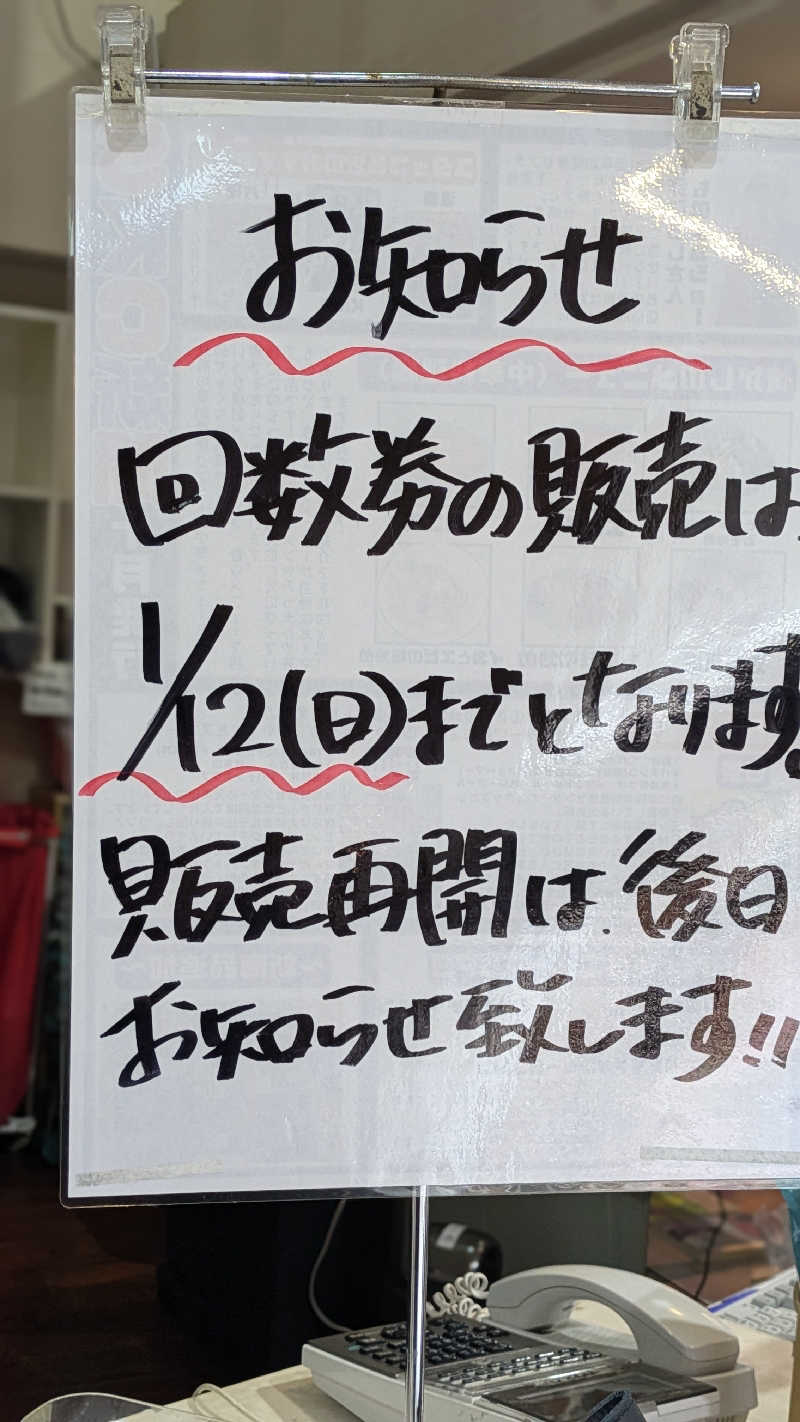 お知らせ
回数券の販売は、
1/12(日)までとなります。
販売再開は、後日
お知らせ致します!!